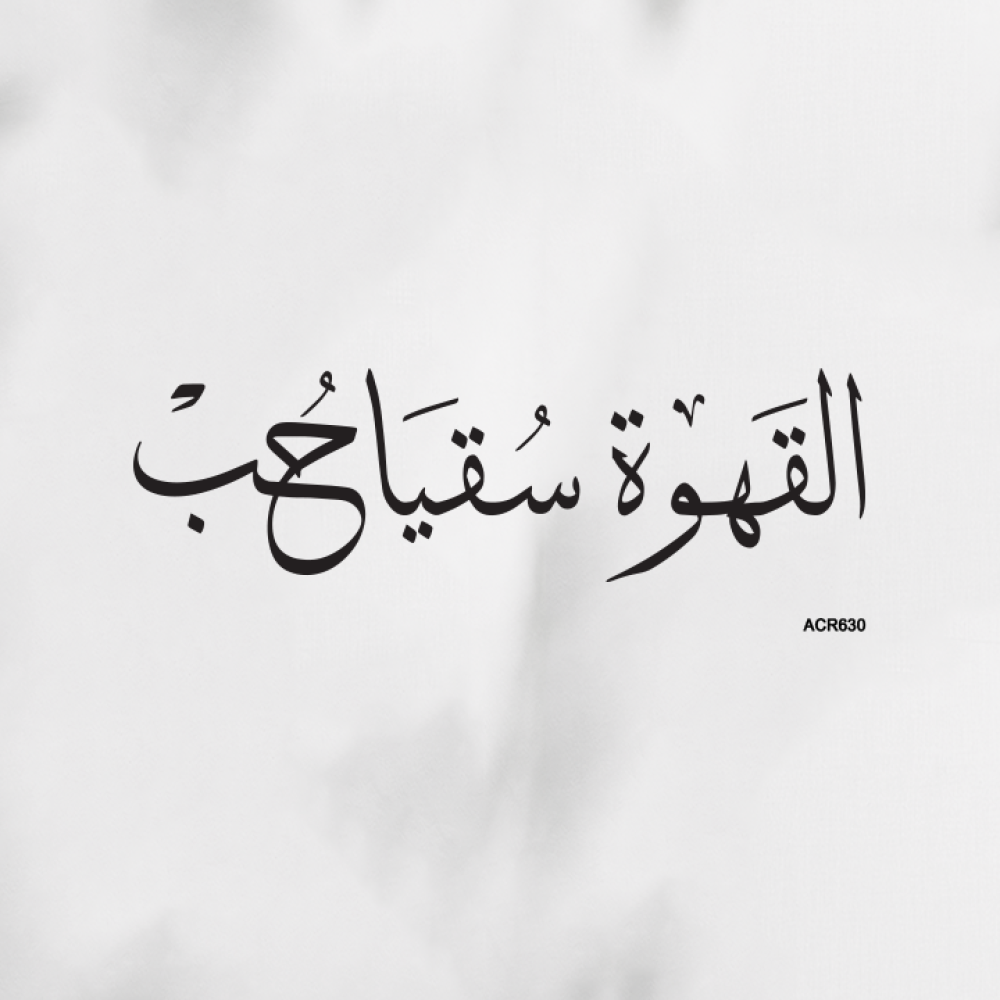 القَهوة سُقيَا حُبْ
ACR630